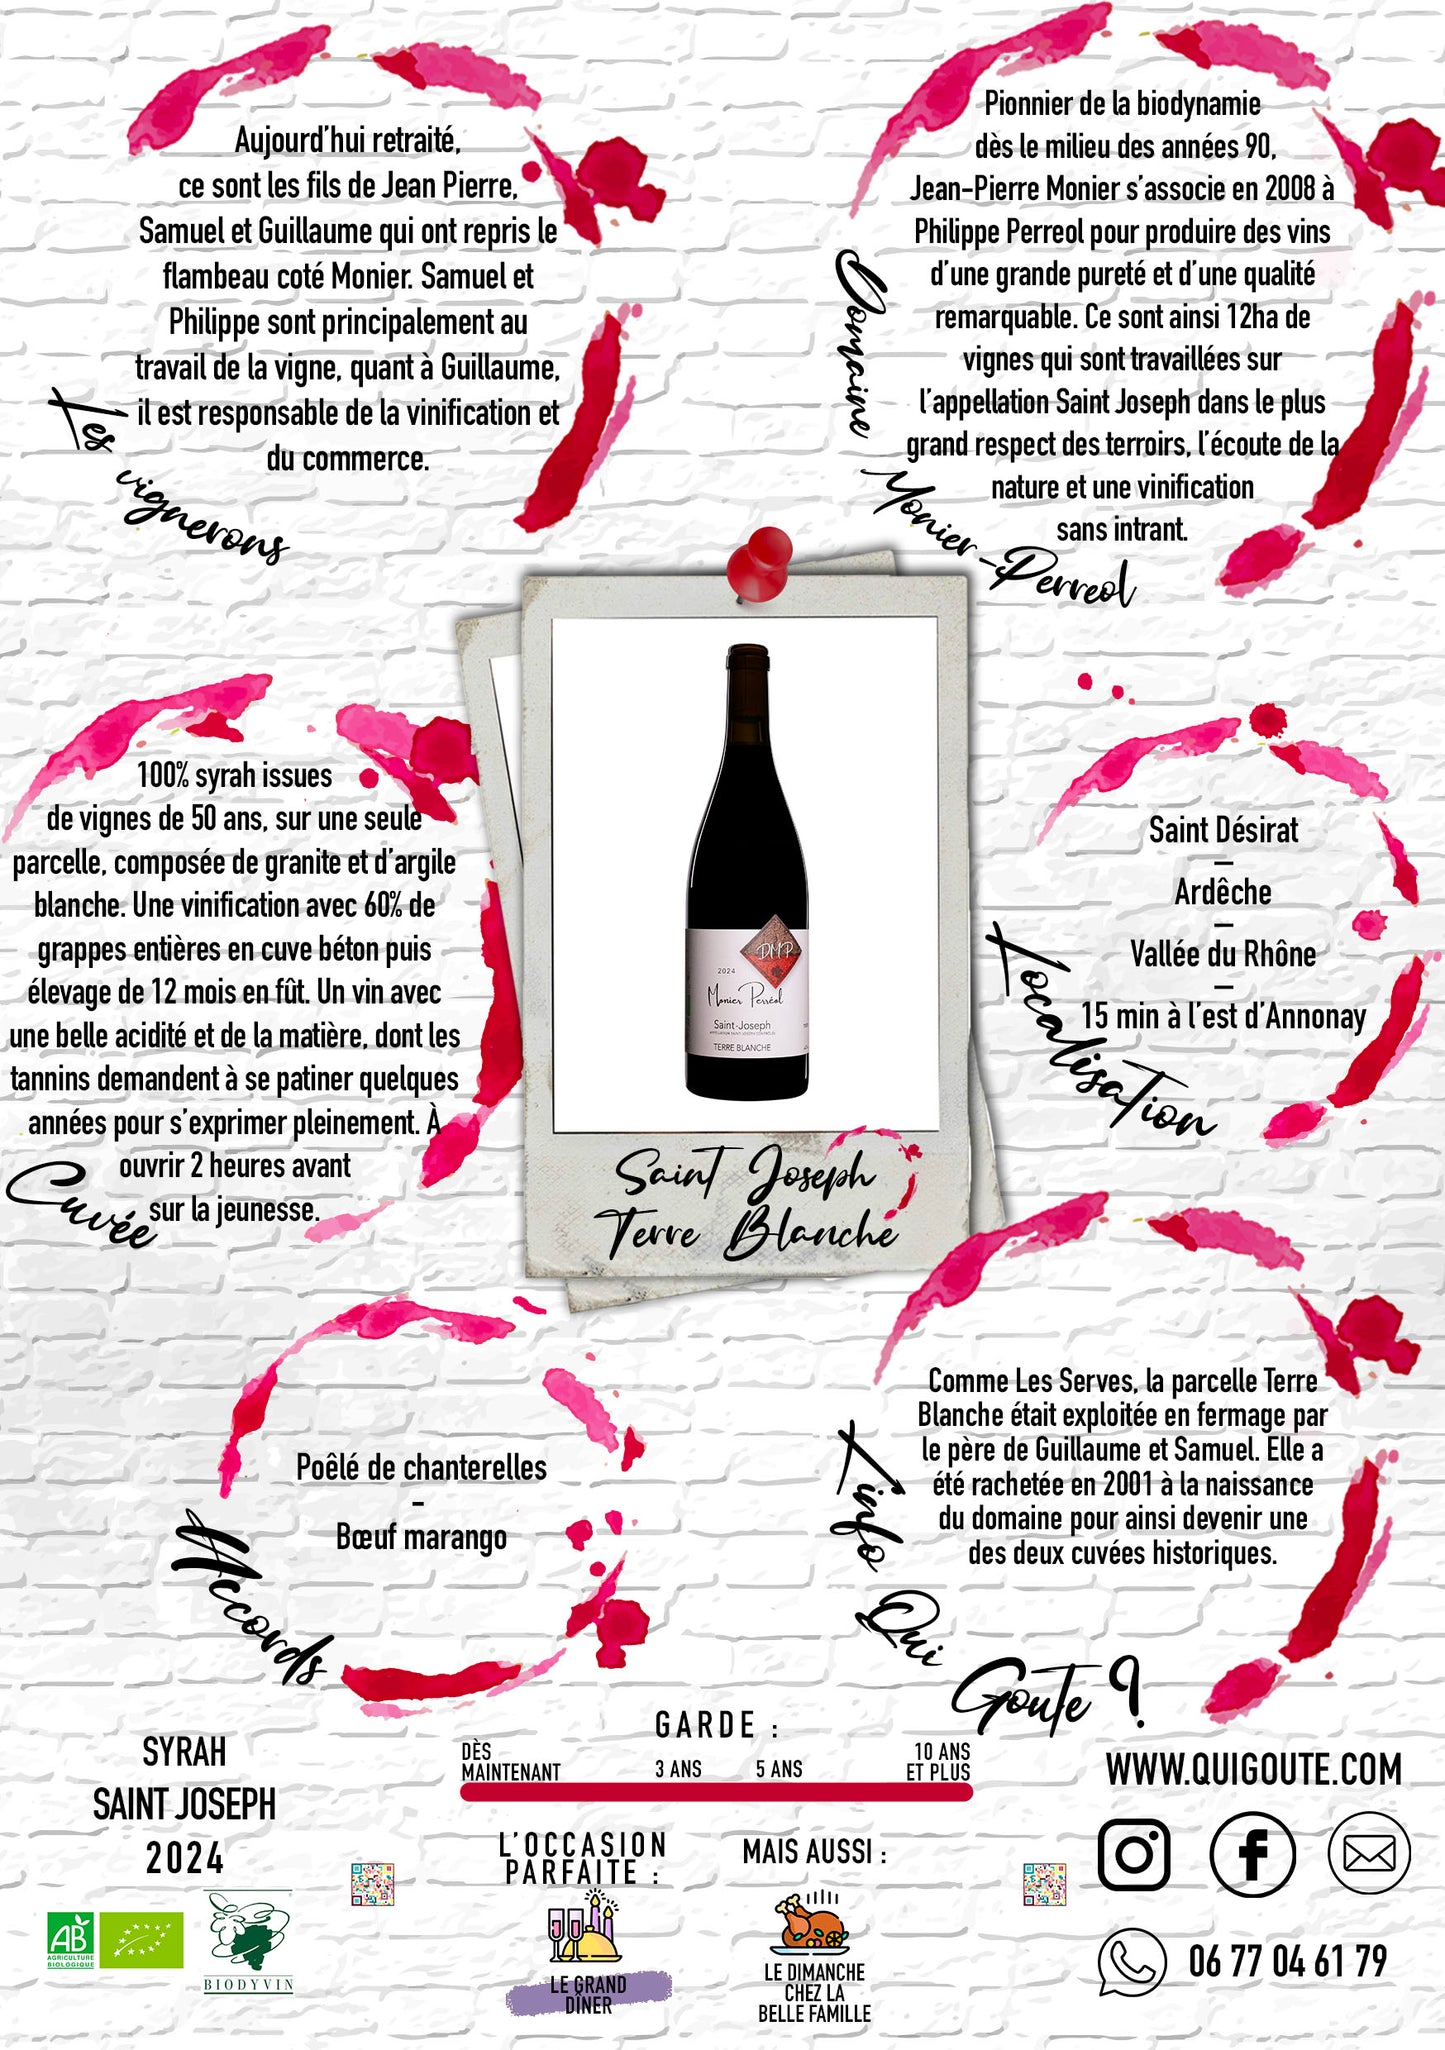 Aujourd'hui retraité,
ce sont les fils de Jean Pierre,
Samuel et Guillaume qui ont repris le
flambeau coté Monier. Samuel et
Philippe sont principalement au
travail de la vigne, quant à Guillaume,
il est responsable de la vinification et
du commerce.
Les vignerons
Pionnier de la biodynamie
dès le milieu des années 90,
Jean-Pierre Monier s'associe en 2008 à
Philippe Perreol pour produire des vins
d'une grande pureté et d'une qualité
remarquable. Ce sont ainsi 12ha de
vignes qui sont travaillées sur
l'appellation Saint Joseph dans le plus
grand respect des terroirs, l'écoute de la
nature et une vinification
sans intrant.
Domaine Monier-Perreol
100% syrah issues
de vignes de 50 ans, sur une seule
parcelle, composée de granite et d'argile
blanche. Une vinification avec 60% de
grappes entières en cuve béton puis
élevage de 12 mois en fût. Un vin avec
une belle acidité et de la matière, dont les
tannins demandent à se patiner quelques
années pour s'exprimer pleinement. À
ouvrir 2 heures avant
sur la jeunesse.
Cuvée
DMP
2024
Monier Perréol
Saint-Joseph
APPELLATION SAINT-JOSEPH CONTRÔLÉE
TERRE BLANCHE
Saint Joseph
Terre Blanche
Saint Désirat
–
Ardêche
–
Vallée du Rhône
–
15 min à l'est d'Annonay
Localisation
Poêlé de chanterelles
-
Bœuf marango
Accords
Comme Les Serves, la parcelle Terre
Blanche était exploitée en fermage par
le père de Guillaume et Samuel. Elle a
été rachetée en 2001 à la naissance
du domaine pour ainsi devenir une
des deux cuvées historiques.
L'info Qui
Goute ?
SYRAH
SAINT JOSEPH
2024
AB
AGRICULTURE
BIOLOGIQUE
BIODYVIN
GARDE :
DÈS
MAINTENANT
3 ANS
5 ANS
10 ANS
ET PLUS
L'OCCASION
PARFAITE :
LE GRAND
DÎNER
MAIS AUSSI :
LE DIMANCHE
CHEZ LA
BELLE FAMILLE
WWW.QUIGOUTE.COM
06 77 04 61 79